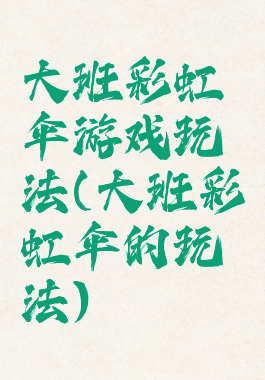 大班彩虹
伞游戏玩
法(大班彩
虹伞的玩
法)